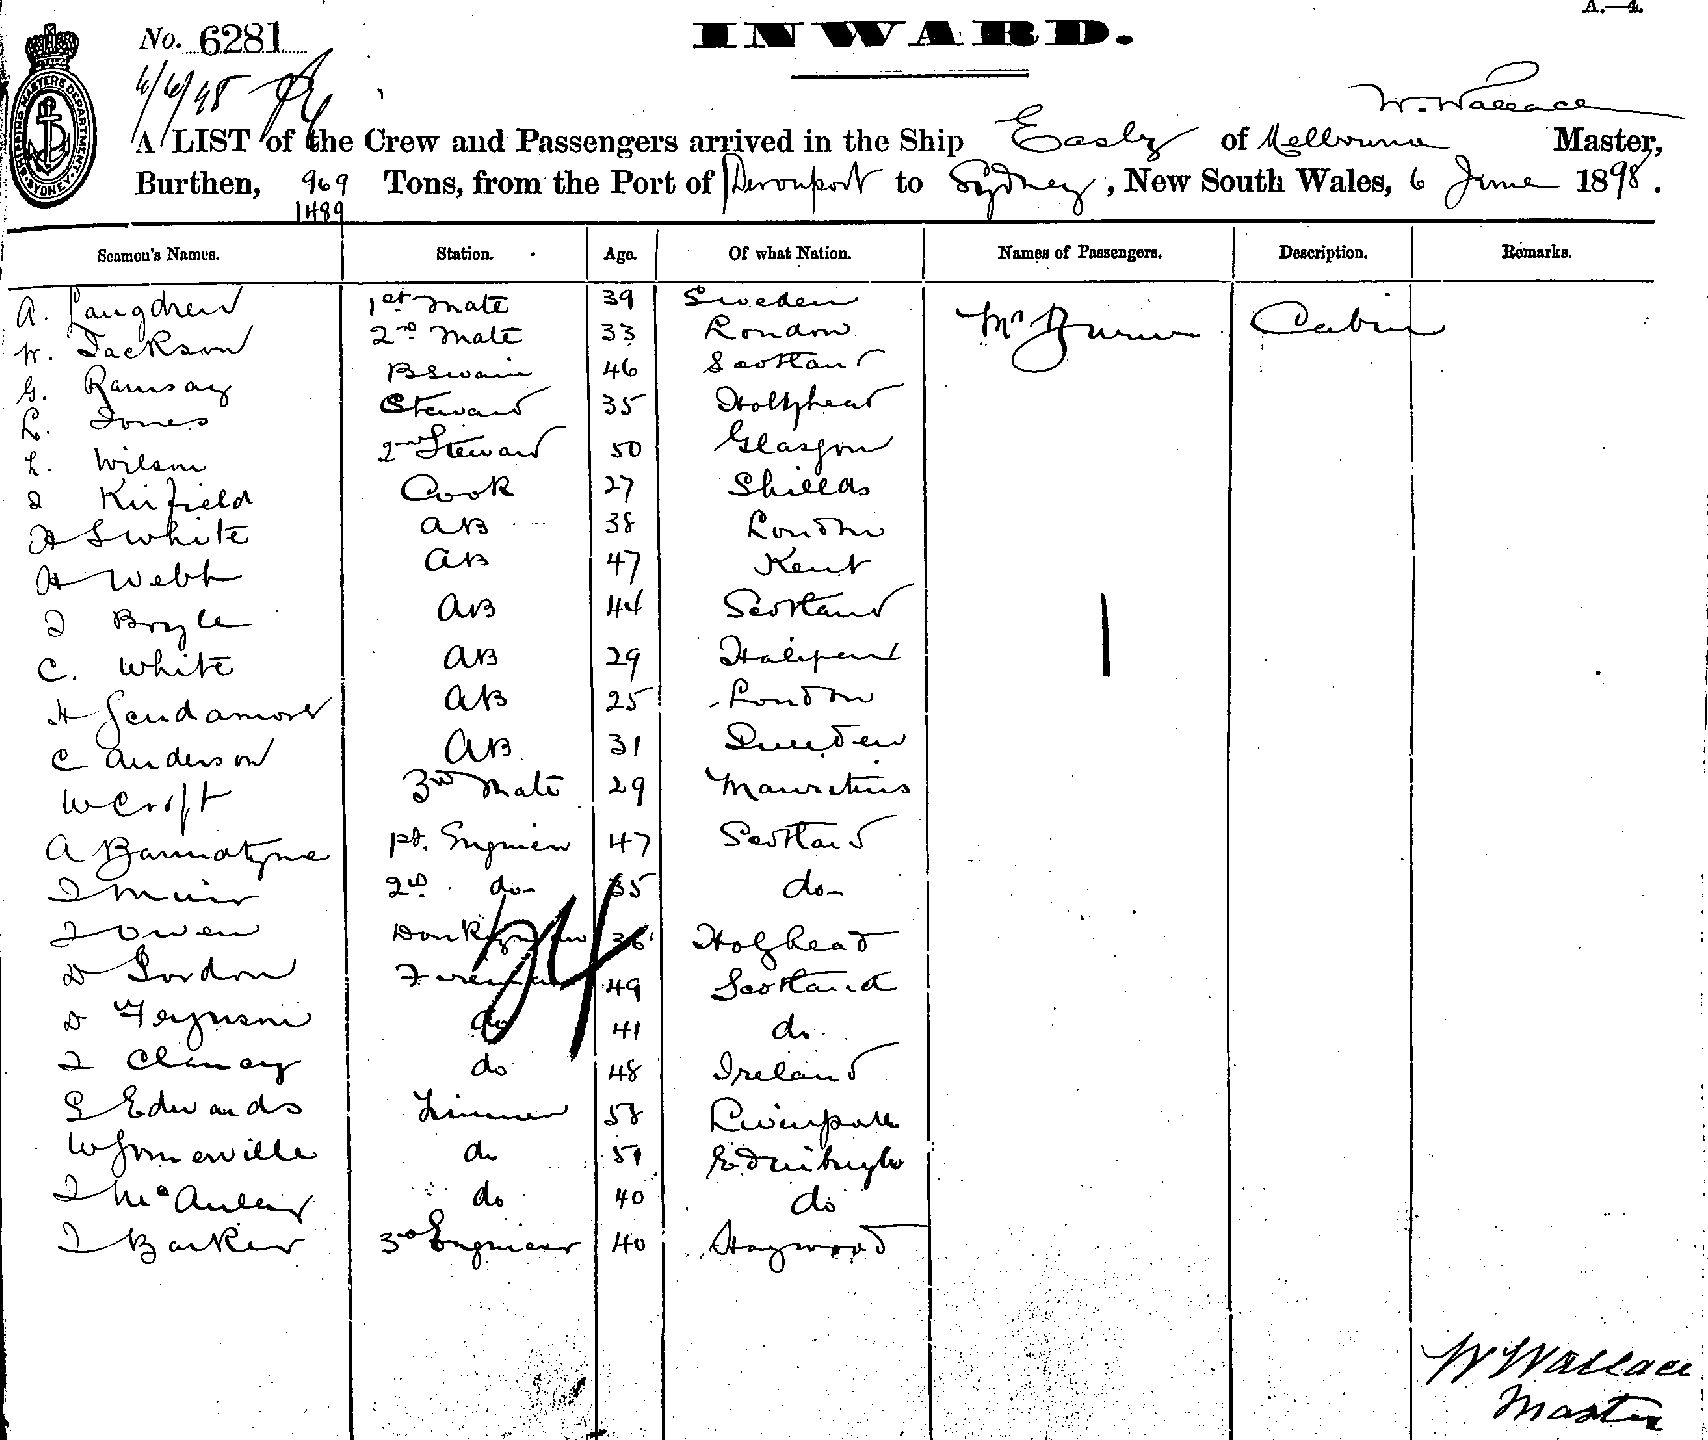 A.—4.
INWARD.
No. 6281
6/6/98
W. Wallace
A LIST of the Crew and Passengers arrived in the Ship Easby of Melbourne Master,
Burthen, 969 Tons, from the Port of Devonport to Sydney, New South Wales, 6 June 1898.
1489
Seamen's Names. Station. Age. Of what Nation. Names of Passengers. Description. Remarks.
A. 1st Mate 39 Sweden Mr Cabin
W. Jackson 2nd Mate 33 London
G. Ramsay BSwain 46 Scotland
L. Jones Steward 35 Holyhead
L. Wilson 2nd Steward 50 Glasgow
J Kirfield Cook 27 Shields
H S White AB 38 London
H Webb AB 47 Kent
J Boyle AB 44 Scotland
C. White AB 29
H AB 25 London
C Anderson AB 31 Sweden
W Croft 3rd Mate 29 Mauritius
A Bannatyne 1st. Engineer 47 Scotland
J Muir 2nd do 35 do
J Owen Donkeyman 36 Holyhead
D Gordon Fireman 49 Scotland
D Ferguson do 41 do
J Clancy do 48 Ireland
G Edwards Trimmer 58 Liverpool
W Somerville do 51 Edinburgh
J McAuley do 40 do
J Barker 3rd Engineer 40 Haywood
24
W Wallace
Master